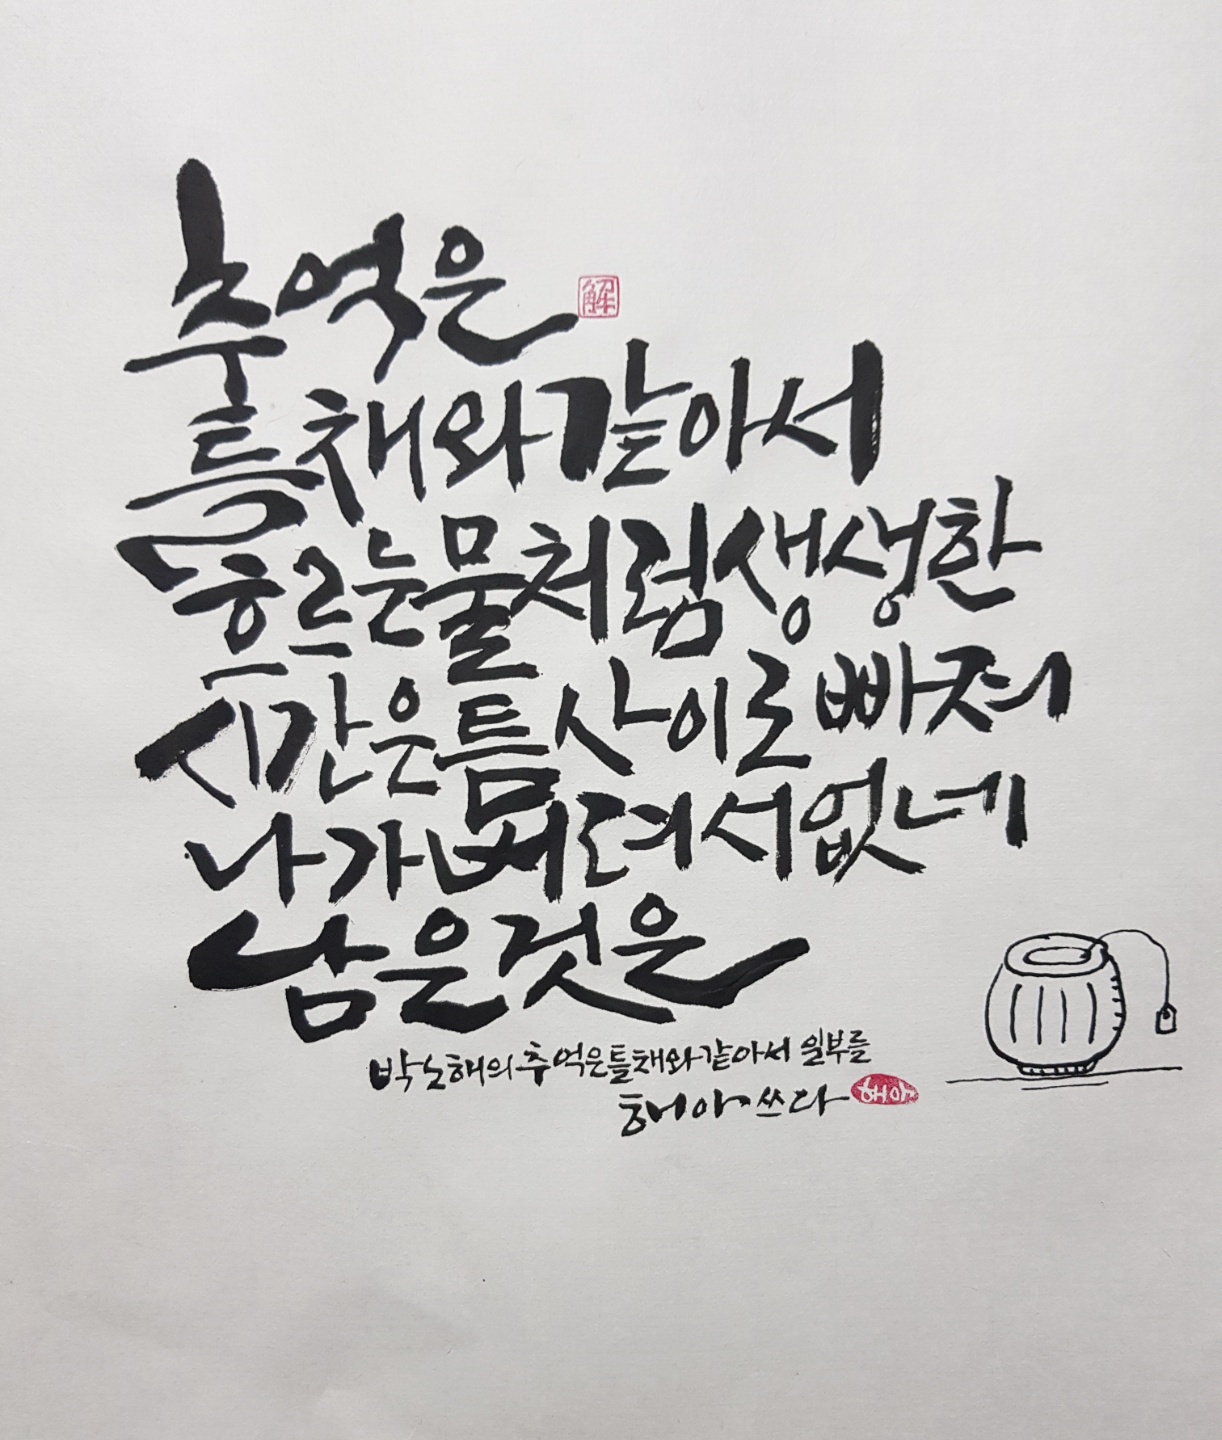 추억은
解
틀채와 같아서
흐르는 물처럼 생생한
시간은 틈 사이로 빠져
나가 버려서 없네
남은 것은
박노해의 추억은 틀채와 같아서 일부를
해아 쓰다
해아